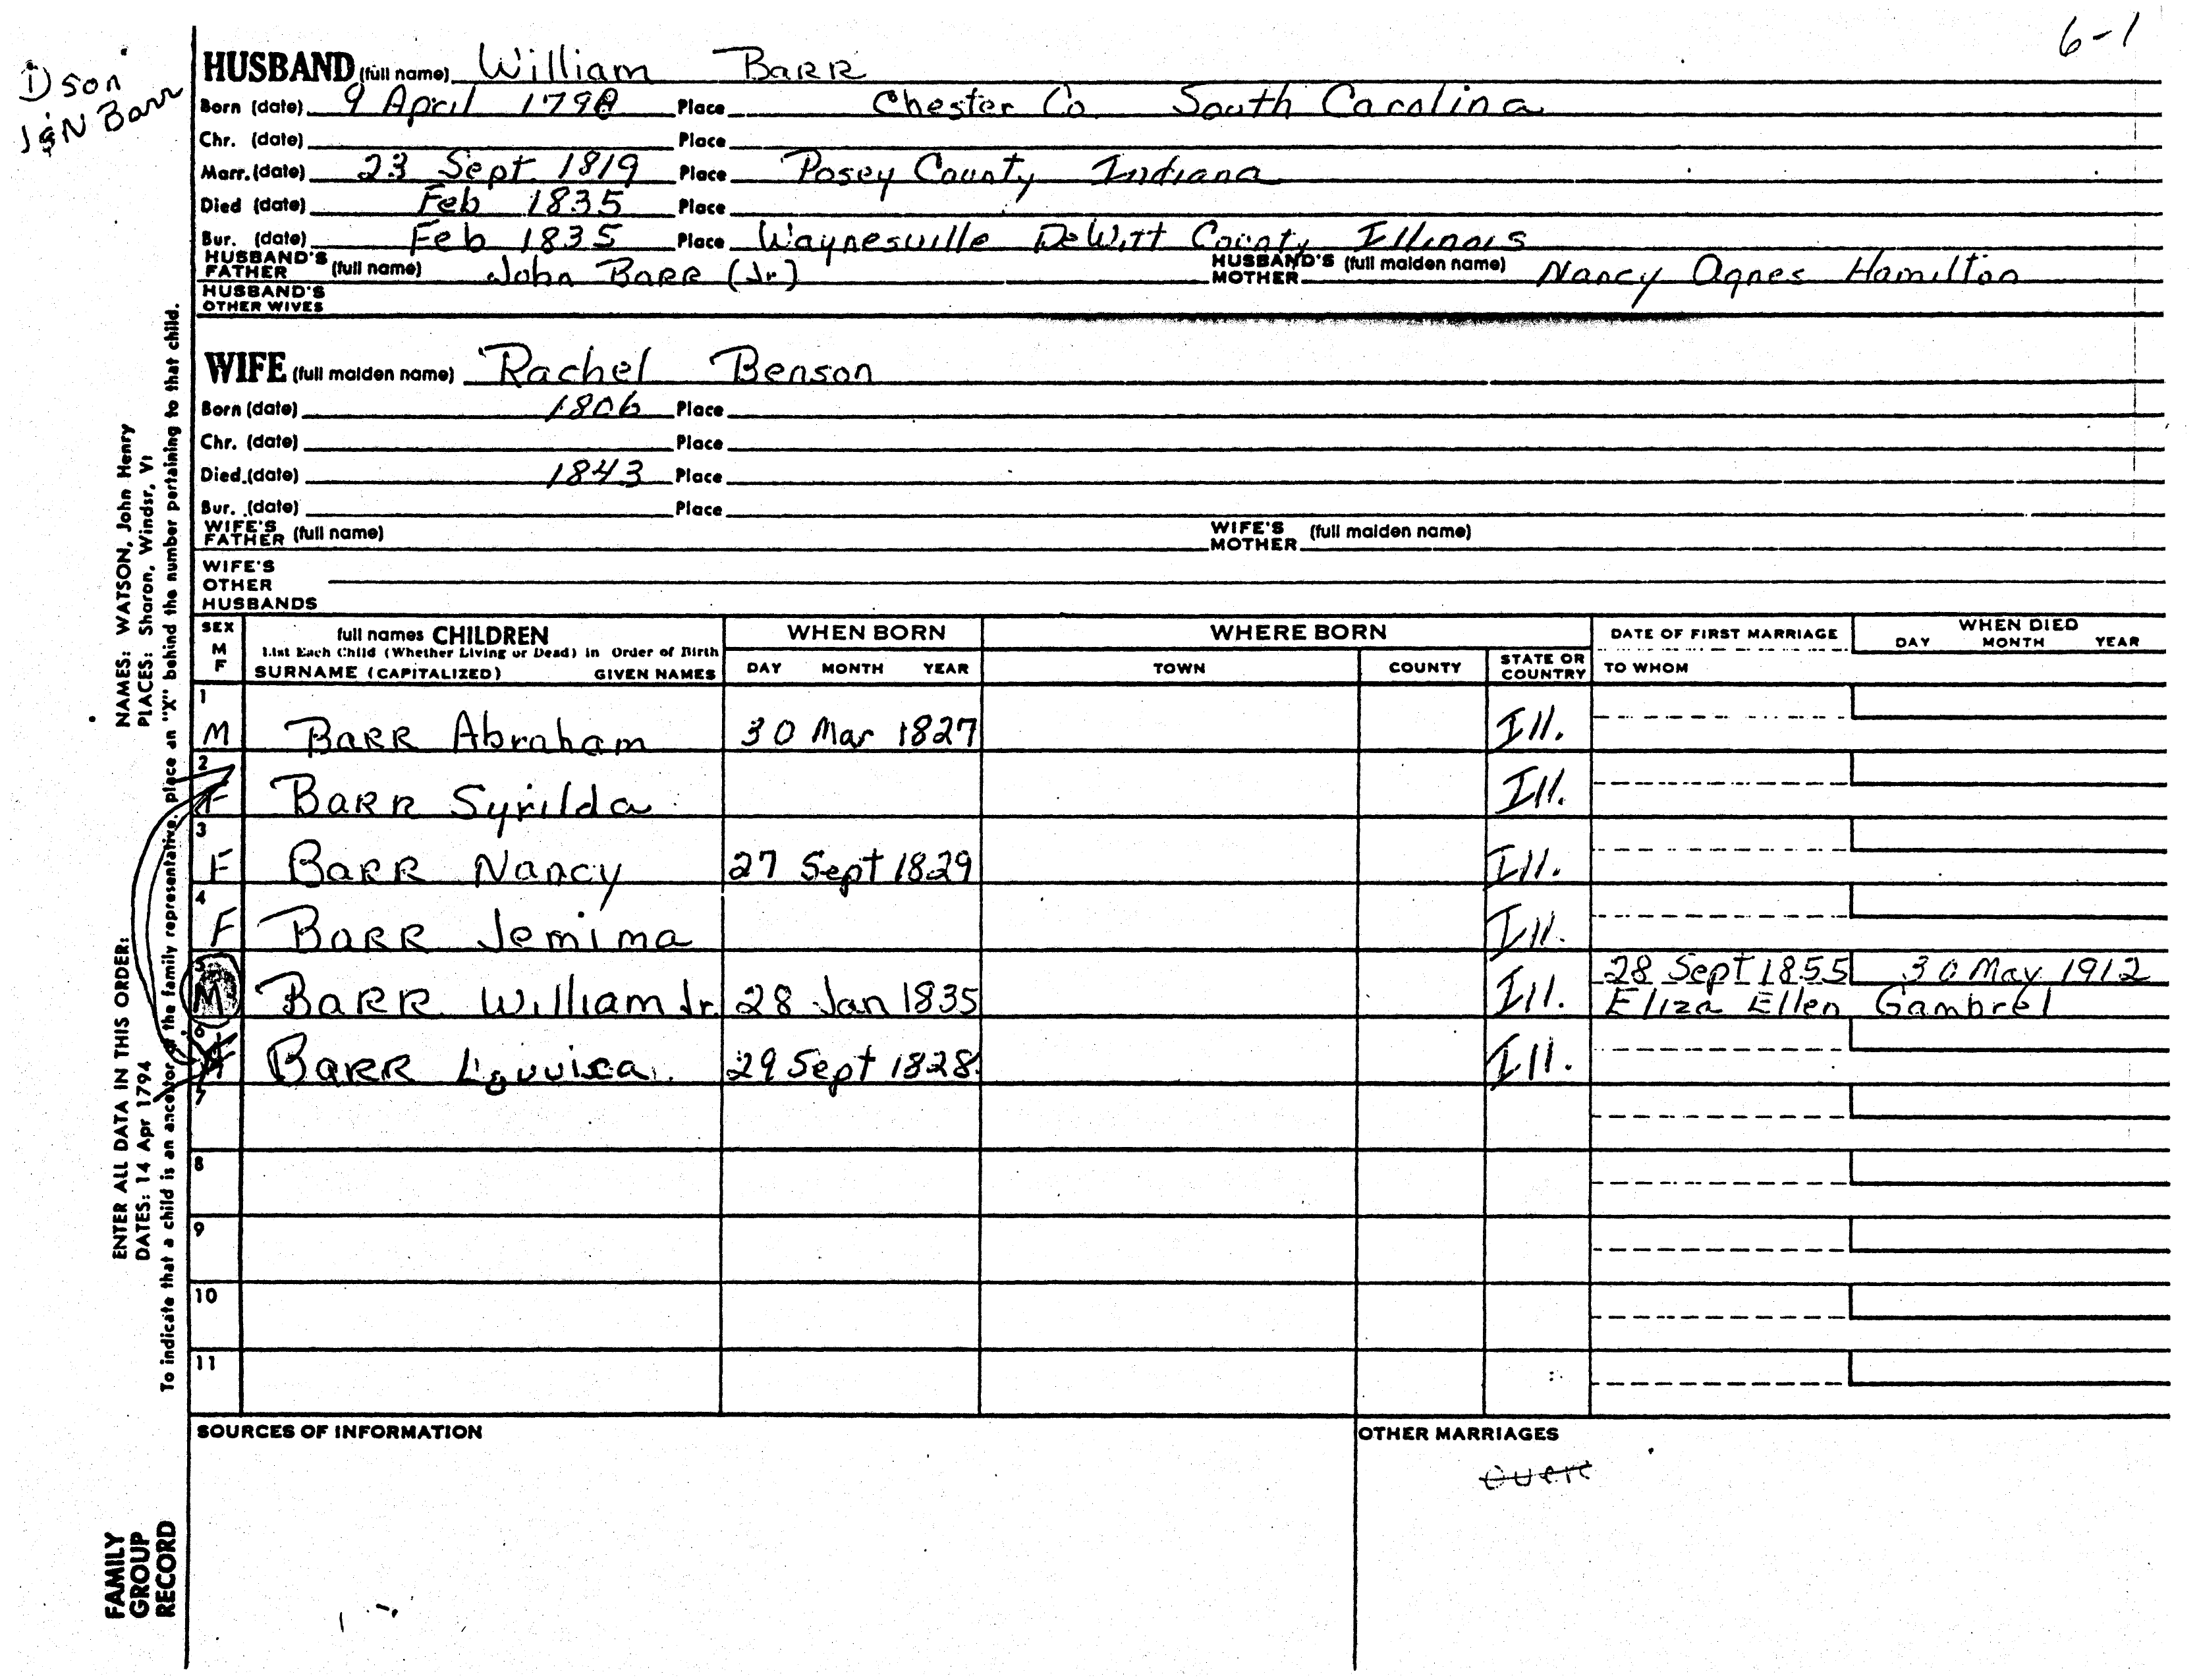 6-1
son
J & N Barr
HUSBAND (full name) William Barr
Born (date) 9 April 1798 Place Chester Co South Carolina
Chr. (date) Place
Marr. (date) 23 Sept. 1819 Place Posey County Indiana
Died (date) Feb 1835 Place
Bur. (date) Feb 1835 Place Waynesville DeWitt County Illinois
HUSBAND'S FATHER (full name) John Barr (Jr) HUSBAND'S MOTHER (full maiden name) Nancy Agnes Hamilton
HUSBAND'S
OTHER WIVES
WIFE (full maiden name) Rachel Benson
Born (date) 1806 Place
Chr. (date) Place
Died (date) 1843 Place
Bur. (date) Place
WIFE'S FATHER (full name) WIFE'S MOTHER (full maiden name)
WIFE'S
OTHER
HUSBANDS
SEX M F full names CHILDREN WHEN BORN WHERE BORN DATE OF FIRST MARRIAGE WHEN DIED
List Each Child (Whether Living or Dead) in Order of Birth
SURNAME (CAPITALIZED) GIVEN NAMES DAY MONTH YEAR TOWN COUNTY STATE OR COUNTRY TO WHOM DAY MONTH YEAR
1
M Barr Abraham 30 Mar 1827 Ill.
2
F Barr Syrilda Ill.
3
F Barr Nancy 27 Sept 1829 Ill.
4
F Barr Jemima Ill.
5 28 Sept 1855 30 May 1912
M Barr William Jr. 28 Jan 1835 Ill. Eliza Ellen Gambrel
6
Barr 29 Sept 1828 Ill.
7
8
9
10
11
SOURCES OF INFORMATION OTHER MARRIAGES
NAMES: WATSON, John Henry
PLACES: Sharon, Windsr, Vt
ENTER ALL DATA IN THIS ORDER:
DATES: 14 Apr 1794
To indicate that a child is an ancestor of the family representative, place an "X" behind the number pertaining to that child.
FAMILY
GROUP
RECORD